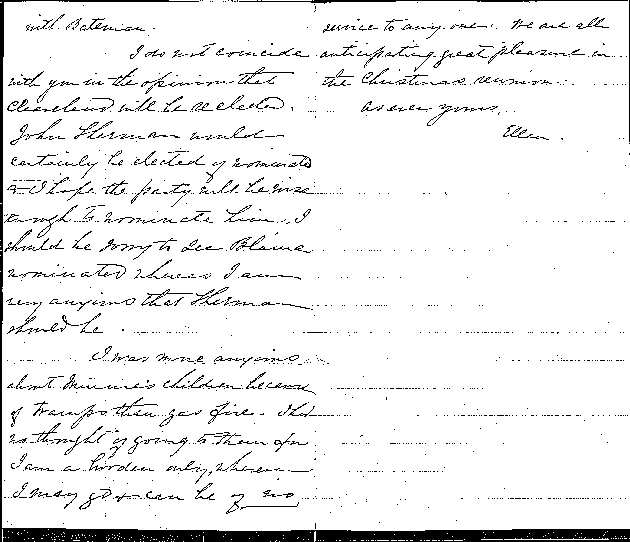 with Bateman.
I do not coincide
with you in the opinion that
Cleaveland will be reelected.
John Sherman would
certainly be elected if nominated
& I hope the party will be wise
enough to nominate him. I
should be sorry to see Blaine
nominated whereas I am
very anxious that Sherman
should be.
I was more anxious
about Minnie's children because
of tramps than gas fire. I had
no thought of going to them for
I am a burden only, where
I may go & can be of no
service to any one. We are all
anticipating great pleasure in
the Christmas reunion.
As ever yours,
Ellen.